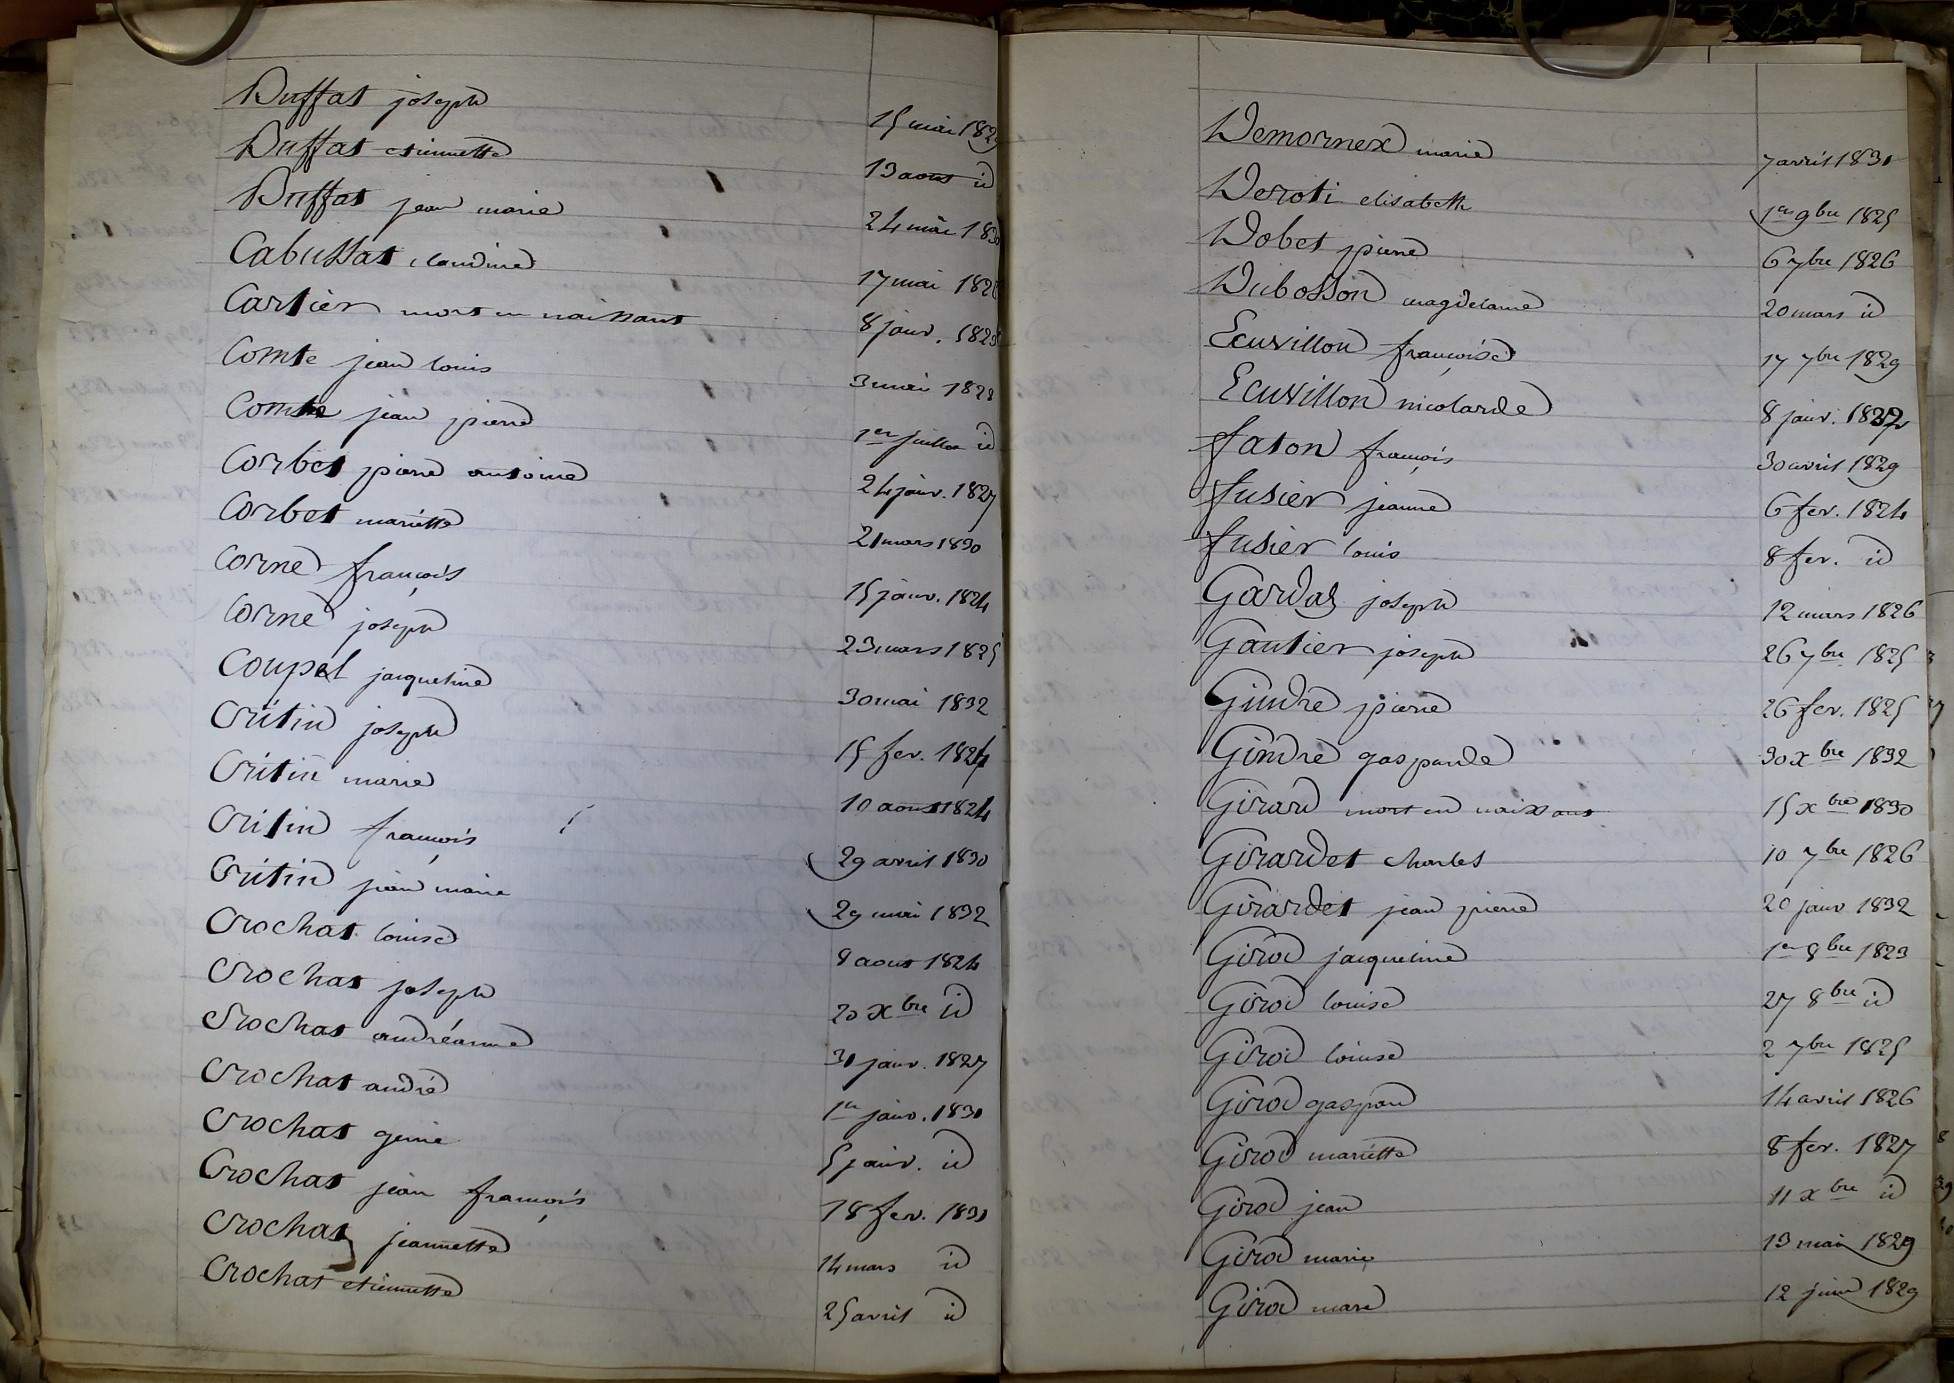 Buffat joseph 15 mai 1829
Buffat etiennette 13 aout id
Buffat jean marie 24 mai 1830
Cabussat claudine 17 mai
Cartier mort en naissant 8 janv.
Comte jean louis 3 mai 1828
Comte jean pierre 1er juillet id
Corbet pierre antoine 24 janv. 1827
Corbet mariette 21 mars 1830
Corne françois 15 janv. 1824
Corne joseph 23 mars 1825
Coupel jacqueline 30 mai 1832
Critin joseph 15 fev. 1824
Critin marie 10 aout 1824
Critin françois 29 avril 1830
Critin jean marie 29 mai 1832
Crochat louise 8 aout 1824
Crochat joseph 20 xbre id
Crochat andréanne 31 janv. 1827
Crochat andré 1er janv. 1831
Crochat genie 5 janv. id
Crochat jean françois 18 fev. 1831
Crochat jeannette 14 mars id
Crochat etiennette 25 avril id
Demornex marie 7 avril 1831
Deroti elisabeth 1er 9bre 1825
Dobet pierre 6 7bre 1826
Dubosson magdelaine 20 mars id
Ecuvillon françoise 17 7bre 1829
Ecuvillon nicolarde 8 janv.
faton françois 30 avril 1829
fusier jeanne 6 fev. 1824
fusier louis 8 fev. id
Gardas joseph 12 mars 1826
Gautier joseph 26 7bre 1825
Gindre pierre 26 fev. 1825
Gindre gasparde 30 xbre 1832
Girard mort en naissant 15 xbre 1830
Girardet charles 10 7bre 1826
Girardet jean pierre 20 janv 1832
Girod jacqueline 1er 8bre 1823
Girod louise 27 8bre id
Girod louise 2 7bre 1825
Girod gaspard 14 avril 1826
Girod mariette 8 fev. 1827
Girod jean 11 xbre id
Girod marie 13 mai 1829
Girod marie 12 juin 1829